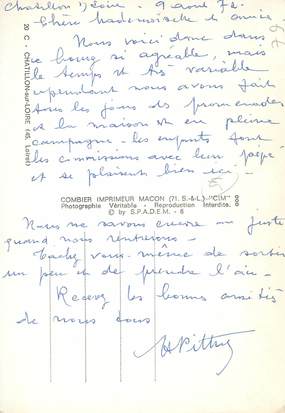 Chatillon s/ Loire . 9 aout 72 .
Chère Mademoiselle et amie .
Nous voici donc dans
ce bourg si agréable, mais
le temps est très variable
cependant nous avons fait
tous les jours des promenades
et la maison est en pleine
campagne . les enfants font
les commissions avec leur pépé
et se plaisent bien ici .
20 C - CHATILLON-sur-LOIRE (45. Loiret)
COMBIER IMPRIMEUR MACON (71. S.-&-L.) - "CIM"
Photographie Véritable - Reproduction Interdite.
© by S.P.A.D.E.M. - 6
Nous ne savons encore au juste
quand nous rentrerons -
Tachez vous-même de sortir
un peu et de prendre l'air -
Recevez les bonnes amitiés
de nous tous